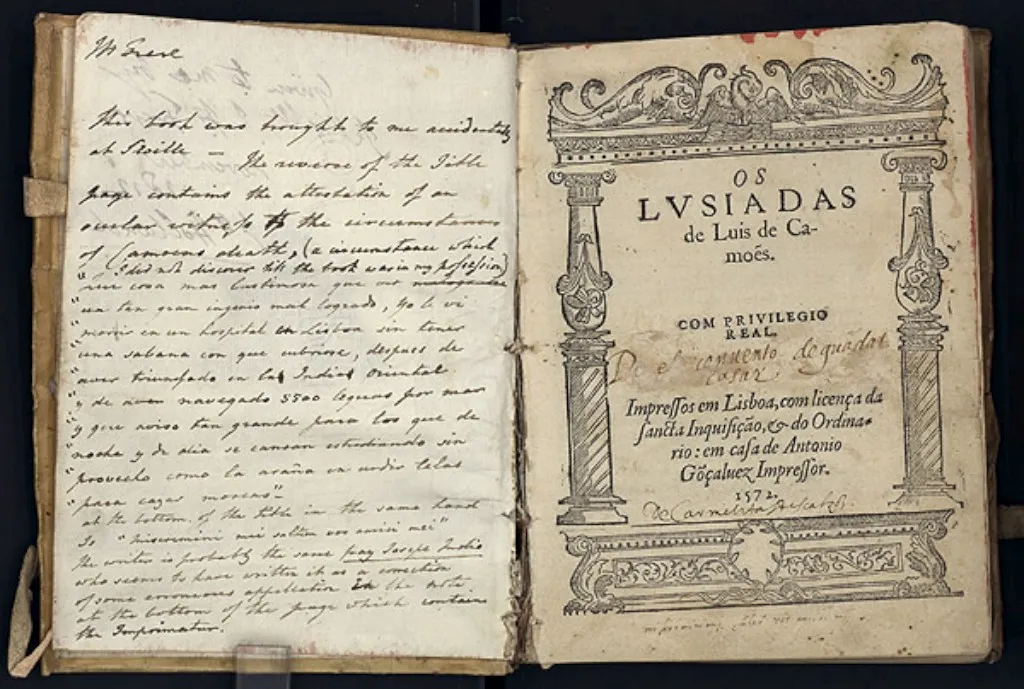 This book was brought to me accidentally
at Seville — The reverse of the Title
page contains the attestation of an
ocular witness to the circumstances
of Camoens death, (a circumstance which
"I did not discover till the book was in my possession)
"que cosa mas lastimosa que ver
"un tan gran ingenio mal logrado, yo le vi
"morir en un hospital en Lisboa sin tener
"una sabana con que cubrirse, despues de
"aver triunfado en la India Oriental
"y de aver navegado 5500 leguas por mar
"y que aviso tan grande para los que de
"noche y de dia se cansan estudiando sin
"provecho como la araña en urdir telas
"para cazar moscas"-
at the bottom of the title in the same hand
Is "miseremini mei saltem vos amici mei"
The writer is probably the same fray Joseph Indio
who seems to have written it as a correction
of some erroneous application in the note
at the bottom of the page which contains
the Imprimatur.
OS
LVSIADAS
de Luis de Ca-
moẽs.
COM PRIVILEGIO
REAL.
De el conuento de guadal
cazar.
Impressos em Lisboa, com licença da
sancta Inquisição, & do Ordina-
rio: em casa de Antonio
Gõçaluez Impressor.
1572.
De Carmelitas descalços